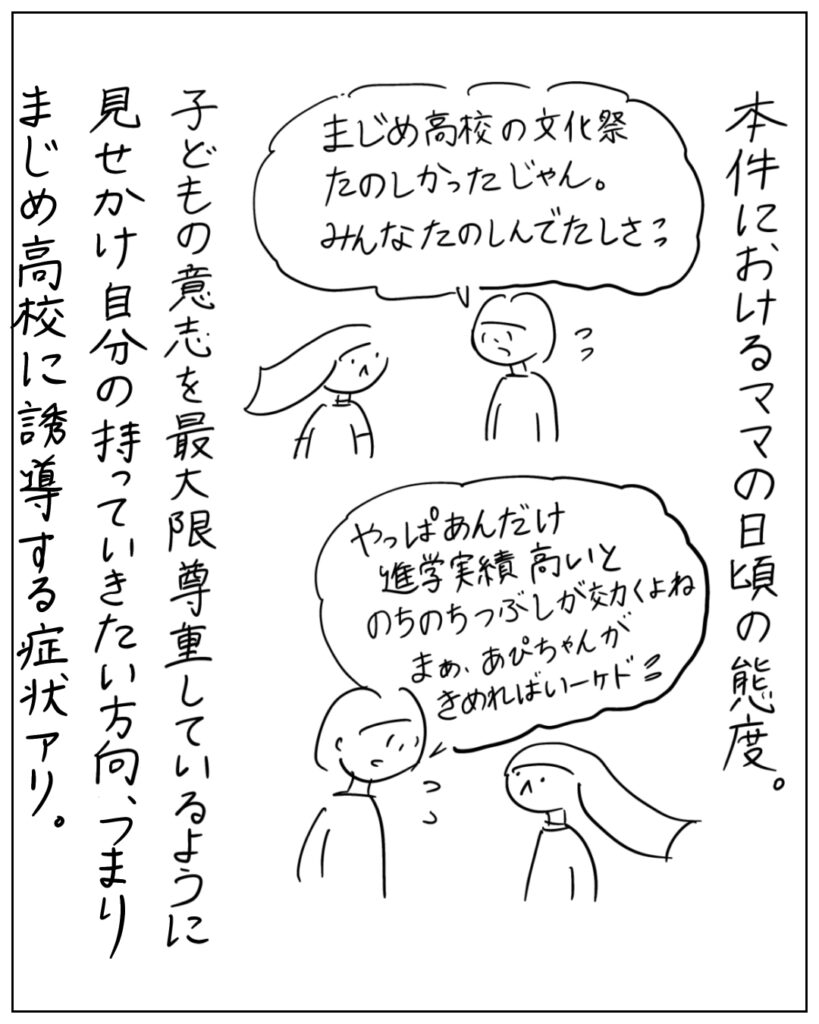 本件におけるママの日頃の態度。
まじめ高校の文化祭
たのしかったじゃん。
みんなたのしんでたしさっ
やっぱあんだけ
進学実績高いと
のちのちつぶしが効くよね
まぁ、あぴちゃんが
きめればいーケド
子どもの意志を最大限尊重しているように
見せかけ自分の持っていきたい方向、つまり
まじめ高校に誘導する症状アリ。